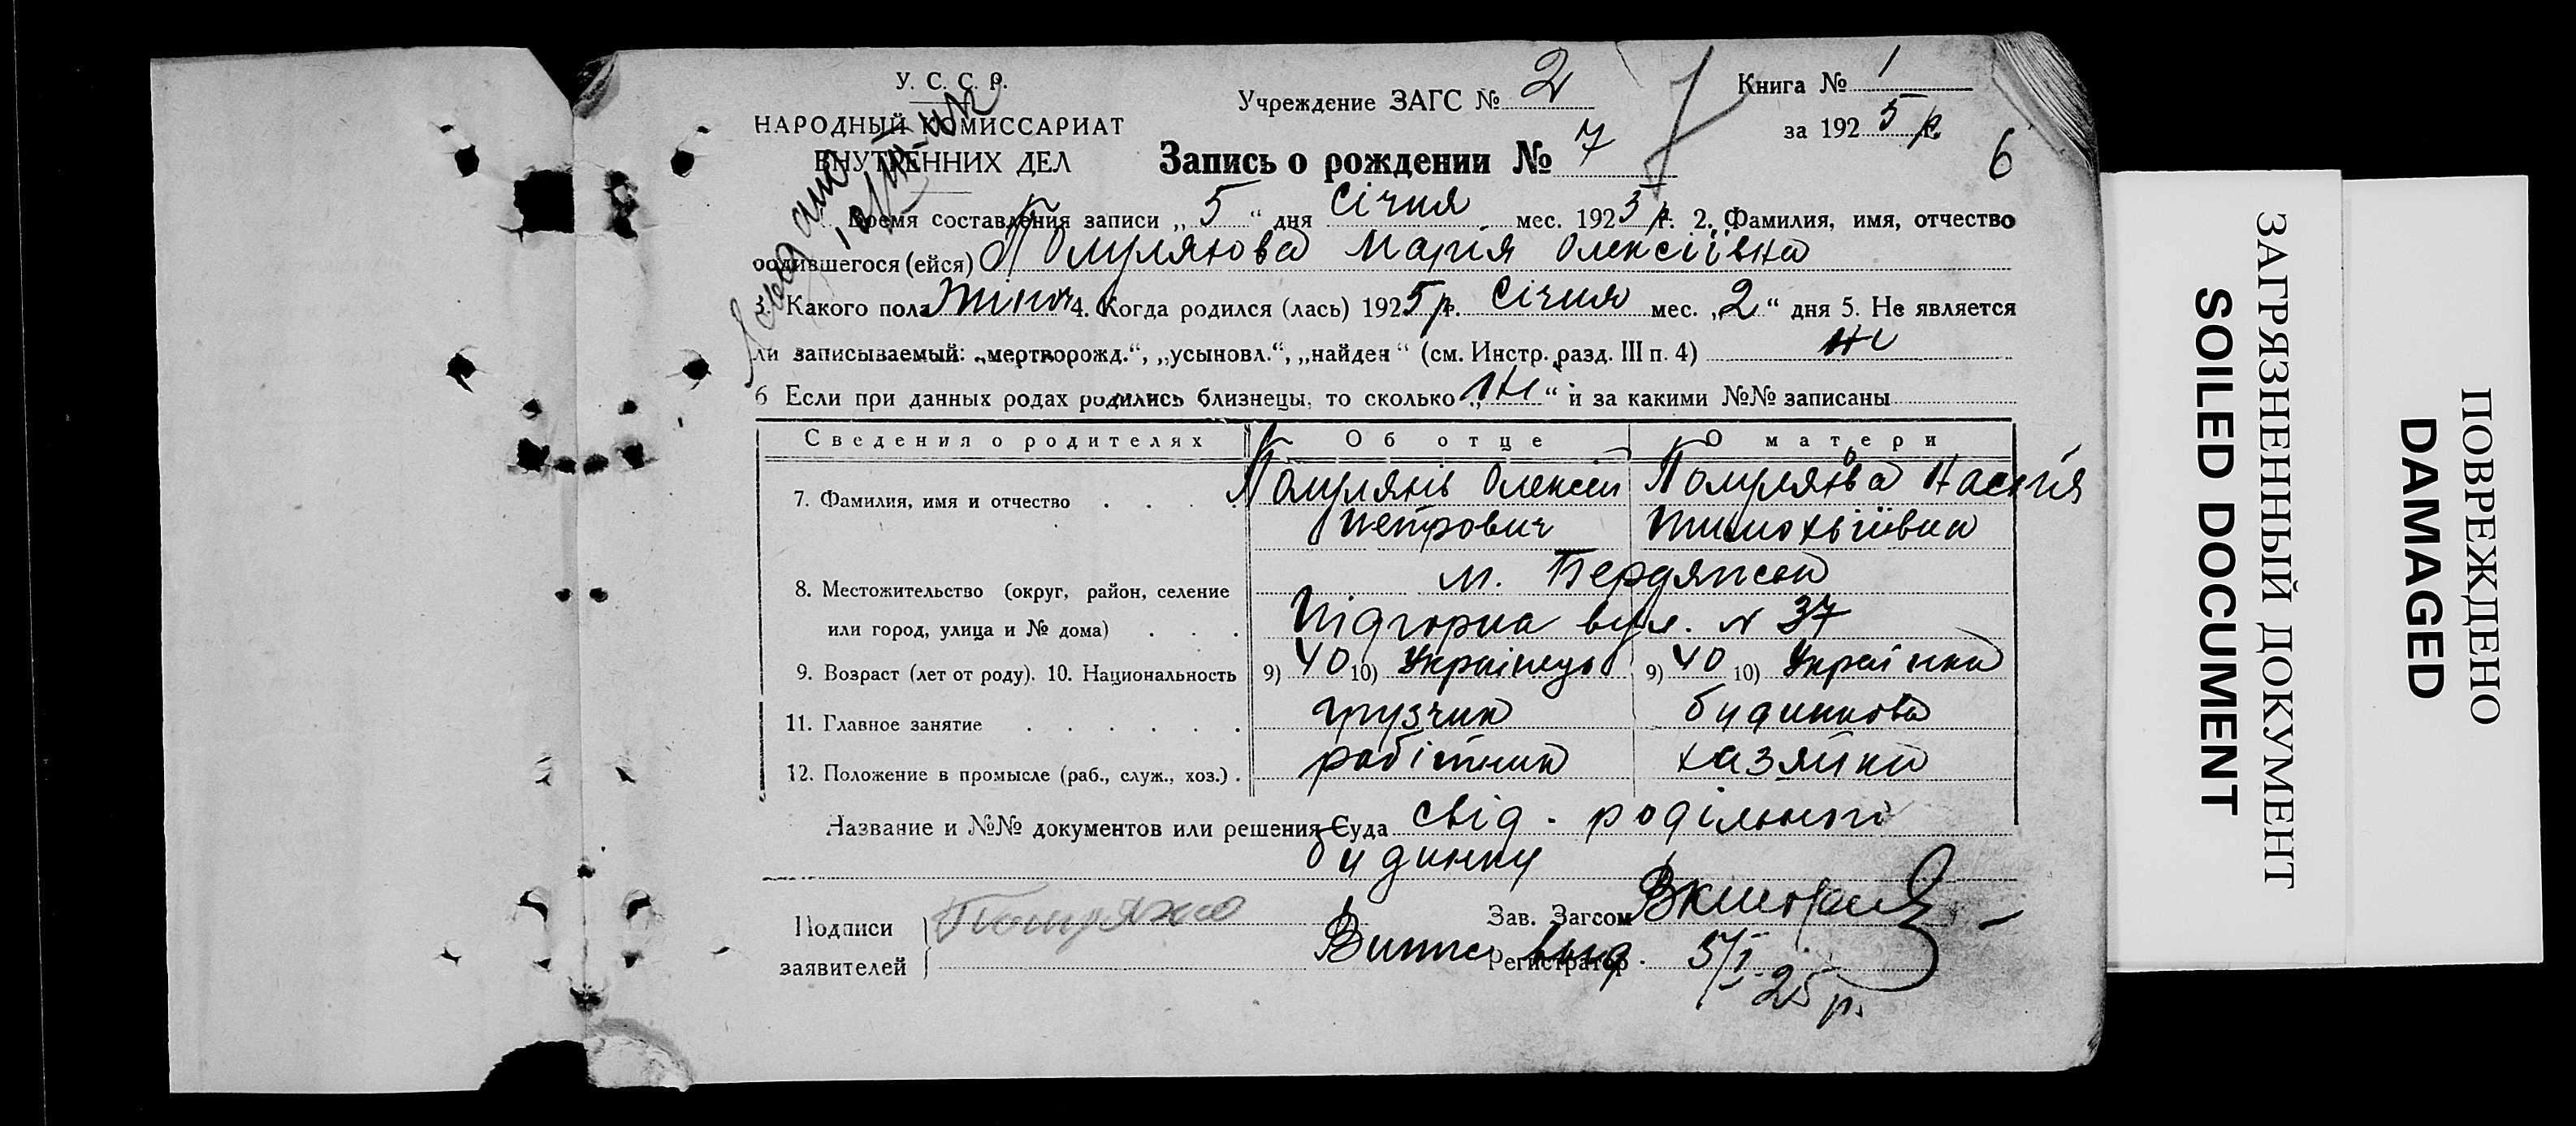 У. С. С. Р.
НАРОДНЫЙ КОМИССАРИАТ
ВНУТРЕННИХ ДЕЛ
Учреждение ЗАГС № 2
Книга № 1
за 1925 р.
6
Запись о рождении № 7
Время составления записи „5“ дня Січня мес. 1925 р. 2. Фамилия, имя, отчество
родившегося (ейся) Марія Олексіївна
3. Какого пола жіноч 4. Когда родился (лась) 1925 р. Січня мес. „2“ дня 5. Не является
ли записываемый: „мертворожд.“, „усыновл.“, „найден“ (см. Инстр. разд. III п. 4) ні
6 Если при данных родах родились близнецы, то сколько „ні“ и за какими №№ записаны
Сведения о родителях Об отце О матери
7. Фамилия, имя и отчество Олексій
Петрович
8. Местожительство (округ, район, селение м. Бердянськ
или город, улица и № дома) Підгорна вул. № 37
9. Возраст (лет от роду). 10. Национальность 9) 40 10) Українець 9) 40 10) Українка
11. Главное занятие грузчик будинкова
12. Положение в промысле (раб., служ., хоз.) робітник хазяйка
Название и №№ документов или решения Суда свід. родільного
будинку
Подписи
заявителей
Зав. Загсом
Регистратор 5/I 25 р.
ЗАГРЯЗНЕННЫЙ ДОКУМЕНТ
SOILED DOCUMENT
ПОВРЕЖДЕНО
DAMAGED